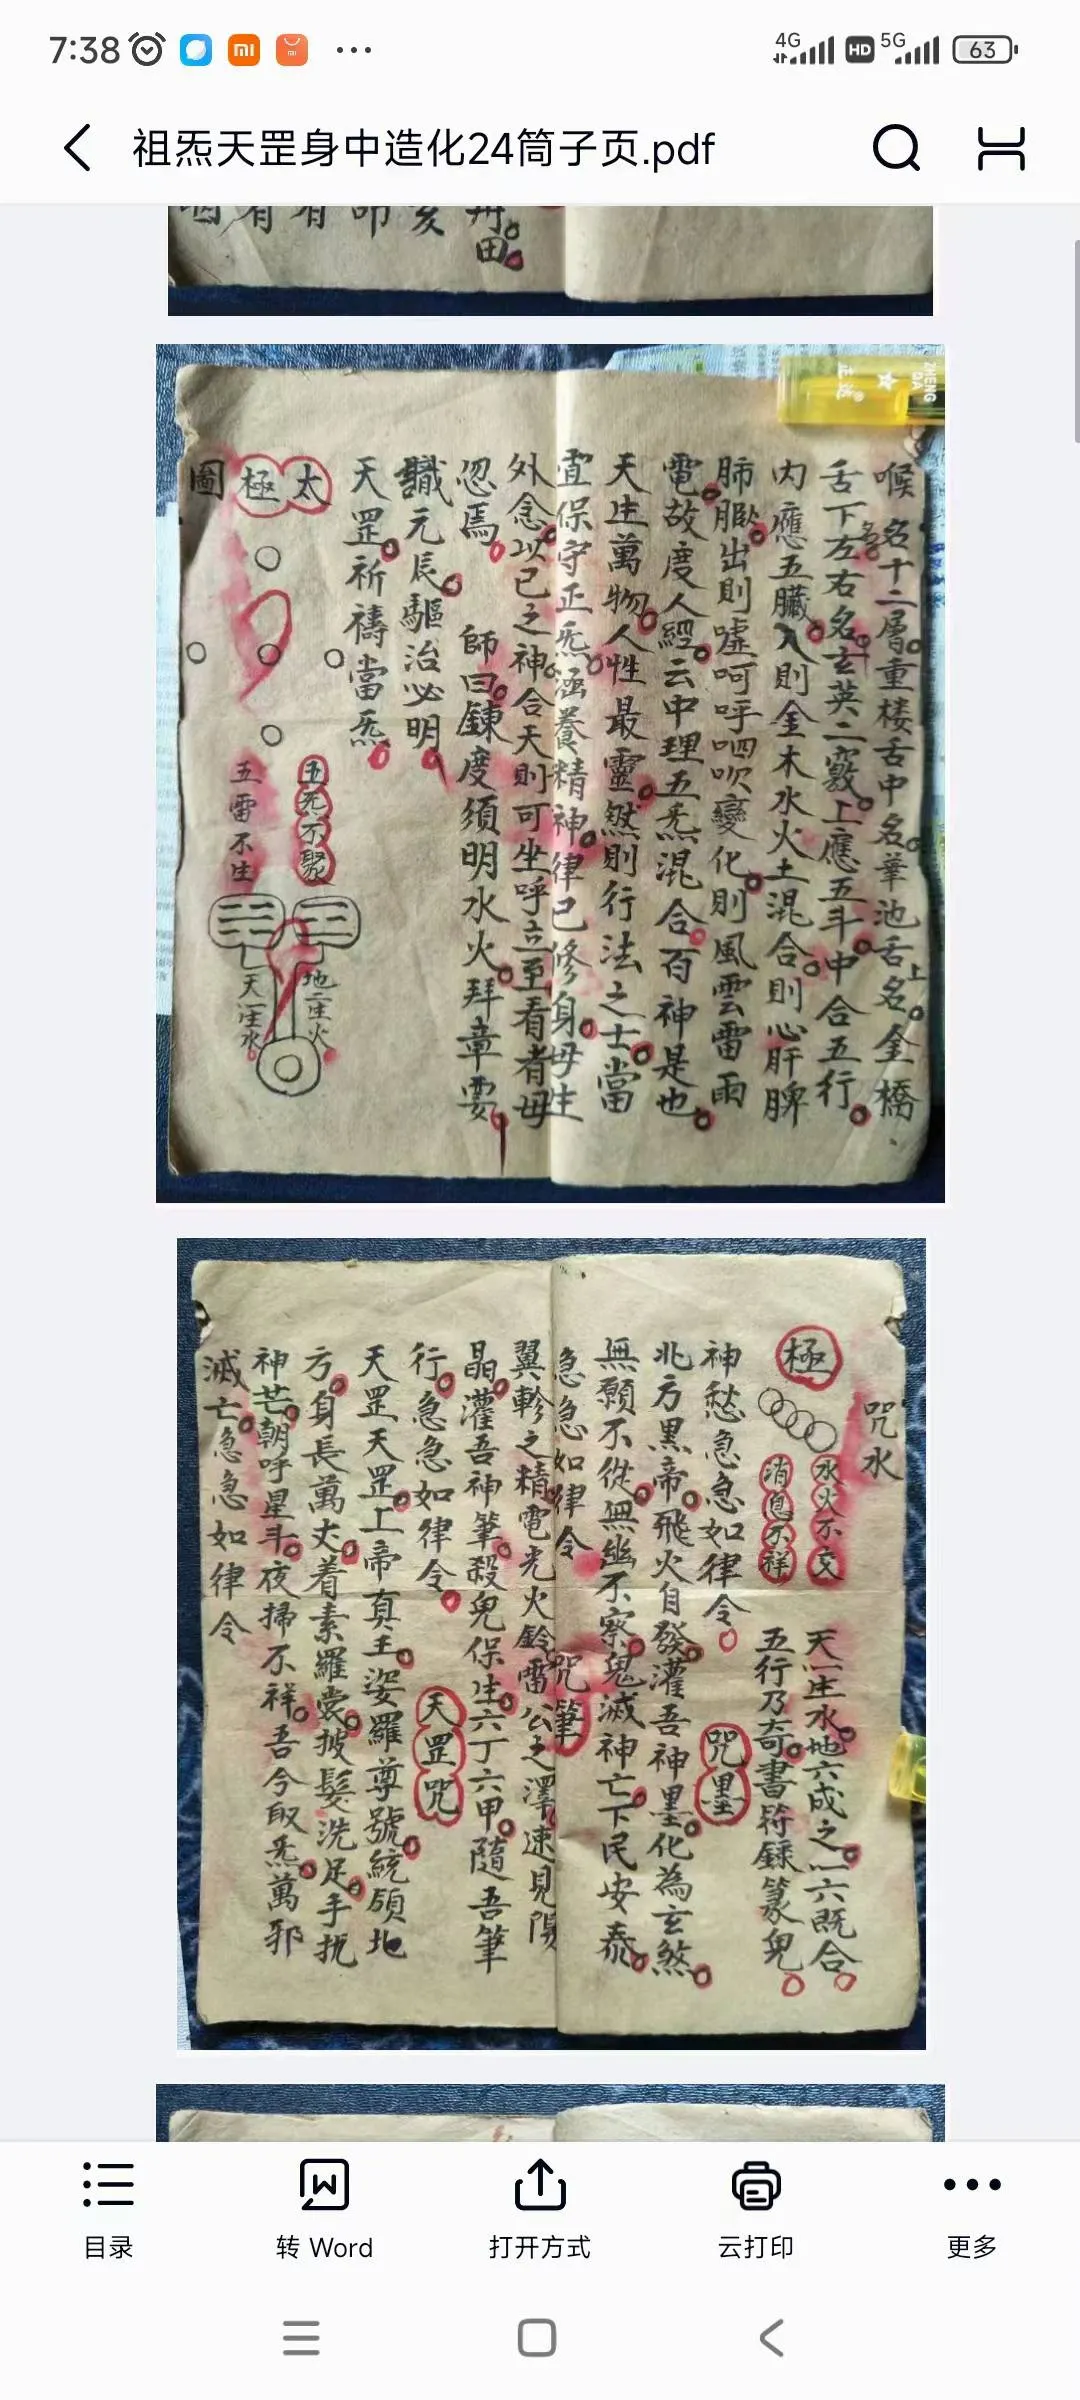 7:38
4G
HD
5G
63
祖炁天罡身中造化24筒子页.pdf
田
ZHENG
DA
正达
喉名十二層重楼舌中名華池舌上名金橋
舌下左右名玄英二竅上應五斗中合五行
内應五臟入則金木水火土混合則心肝脾
肺出則噓呵呼呬吹變化則風雲雷雨
電故度人經云中理五炁混合百神是也
天生萬物人性最靈然則行法之士當
宜保守正炁涵養精神律己修身毋生
外念以己之神合天則可坐呼立至看者毋
忽焉 師曰鍊度須明水火拜章要
識元辰驅治必明
天罡祈禱當炁
太極圖
五炁不聚
五雷不生
地二生火
天一生水
咒水
極
水火不交
消息不祥
天一生水地六成之一六既合
五行乃奇書符錄篆鬼
神愁急急如律令
咒墨
北方黑帝飛火自發灌吾神墨化為玄煞
無願不從無幽不察鬼滅神亡下民安泰
急急如律令
咒筆
翼軫之精電光火鈴雷公之澤速見陽
晶灌吾神筆殺鬼保生六丁六甲隨吾筆
行急急如律令
天罡咒
天罡天罡上帝真主姿羅尊號統領北
方身長萬丈着素羅裳披髮洗足手執
神芒朝呼星斗夜掃不祥吾今取炁萬邪
滅亡急急如律令
目录
转 Word
打开方式
云打印
更多